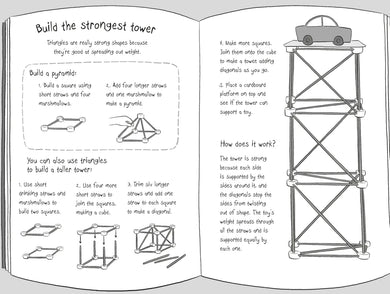 Build the strongest tower
Triangles are really strong shapes because
they're good at spreading out weight.
Build a pyramid:
1. Build a square using
short straws and four
marshmallows.
2. Add four longer straws
and one marshmallow to
make a pyramid.
You can also use triangles
to build a taller tower:
1. Use short
drinking straws and
marshmallows to
build two squares.
2. Use four more
short straws to
join the squares,
making a cube.
3. Trim six longer
straws and add one
straw to each square
to make a diagonal.
4. Make more squares.
Join them onto the cube
to make a tower adding
diagonals as you go.
5. Place a cardboard
platform on top and
see if the tower can
support a toy.
How does it work?
The tower is strong
because each side
is supported by the
sides around it, and
the diagonals stop the
sides from twisting
out of shape. The toy's
weight spreads through
all the straws and is
supported equally by
each one.